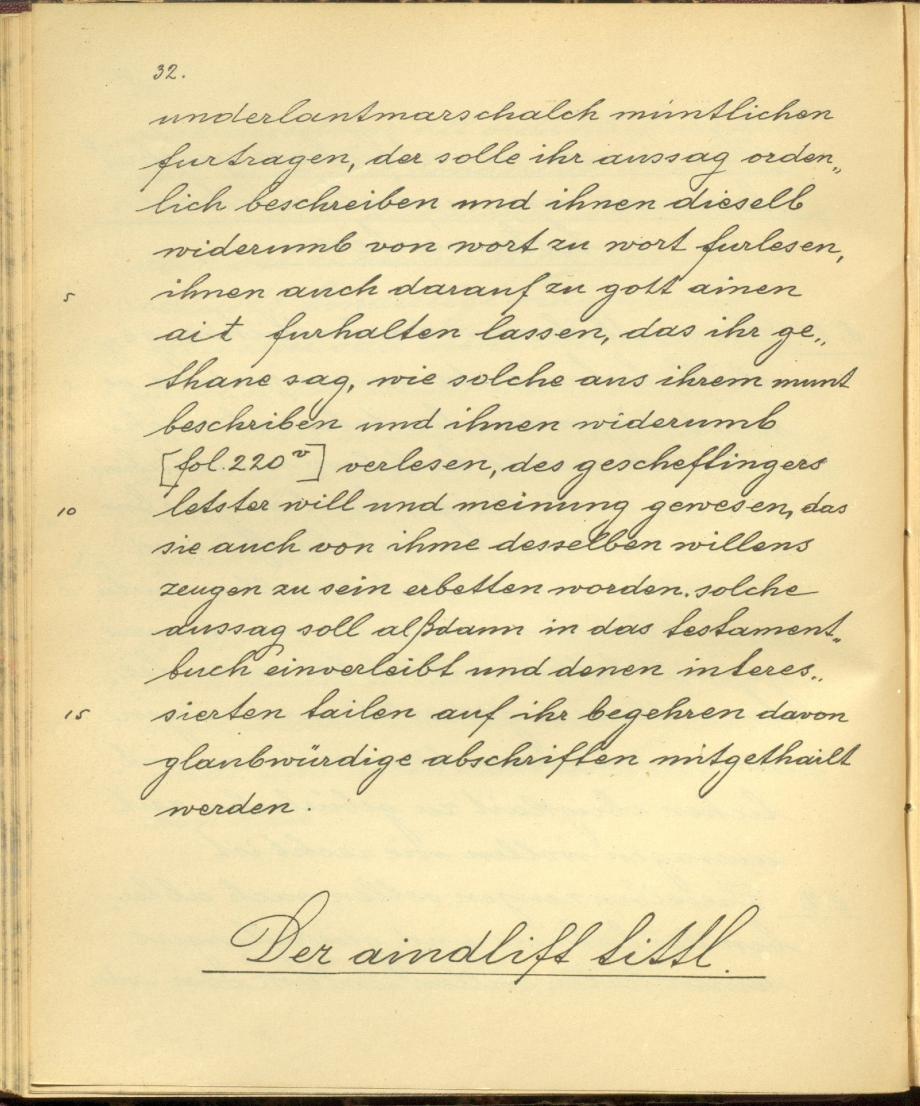 32.
underlantmarschalch mimtlichen
furtragen, der solle ihr aussag orden„
lich beschreiben und ihnen dieselb
widerumb von wort zu wort furlesen,
5 ihnen auch darauf zu gott ainen
ait furhalten lassen, das ihr ge„
thane sag, wie solche aus ihrem munt
beschriben und ihnen widerumb
[fol. 220 v] verlesen, des gescheftingers
10 letster will und meinung gewesen, das
sie auch von ihme desselben willens
zeugen zu sein erbetten worden. solche
aussag soll alßdann in das testament„
buch einverleibt und denen interes„
15 sierten tailen auf ihr begehren davon
glaubwürdige abschriften mitgethailt
werden.
Der aindlift tittl.